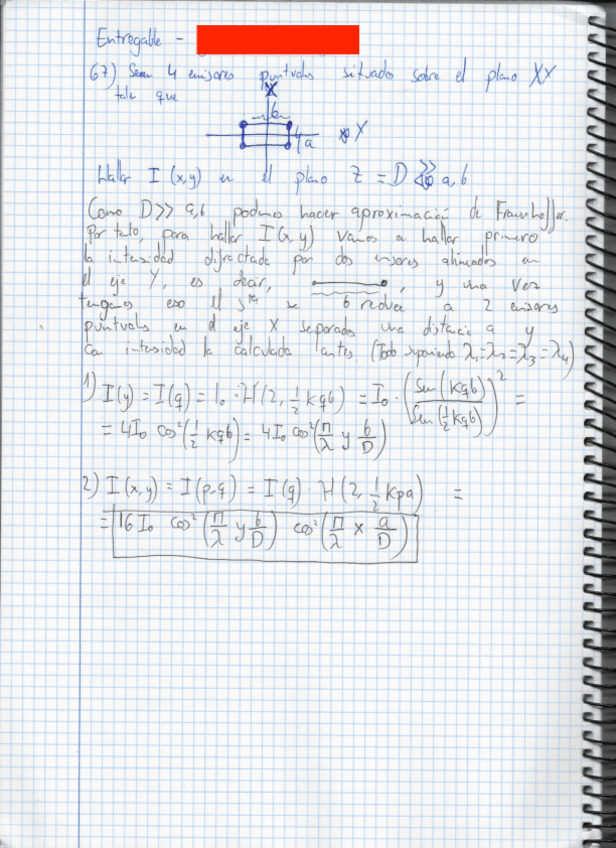 Entregable -
67) Sean 4 emisores puntuales situados sobre el plano XY
tales que
X
b
a
Y
Hallar I (x,y) en el plano Z = D >> a, b
Como D>> a,b podemos hacer aproximación de Fraunhoffer.
Por tanto, para hallar I(x,y) vamos a hallar primero
la intensidad difractada por dos emisores alineados en
el eje Y, es decir, , y una vez
b
tengamos eso el se reduce a 2 emisores
puntuales en el eje X separados una distancia a y
con intensidad la calculada antes (Todo suponiendo λ₁=λ₂=λ₃=λ₄)
1) I(y) = I(q) = I₀ · H(2, ½ kqb) = I₀ · (Sen(kqb) / Sen(½kqb))² =
= 4I₀ cos²(½ kqb) = 4I₀ cos²(π/λ y b/D)
2) I(x,y) = I(p,q) = I(q) · H(2, ½ kpa) =
= 16 I₀ cos²(π/λ y b/D) cos²(π/λ x a/D)